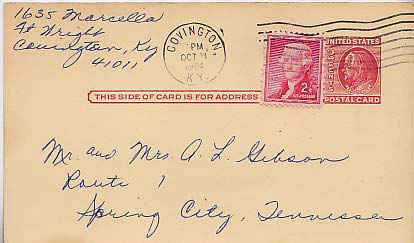 1635 Marcella
Ft Wright
Covington, Ky
41011
COVINGTON,
PM
OCT
1964
KY.
2¢
U.S. POSTAGE
UNITED STATES
POSTAL-CARD
THIS SIDE OF CARD IS FOR ADDRESS
Mr. and Mrs. A. L. Gibson
Route 1
Spring City, Tennessee